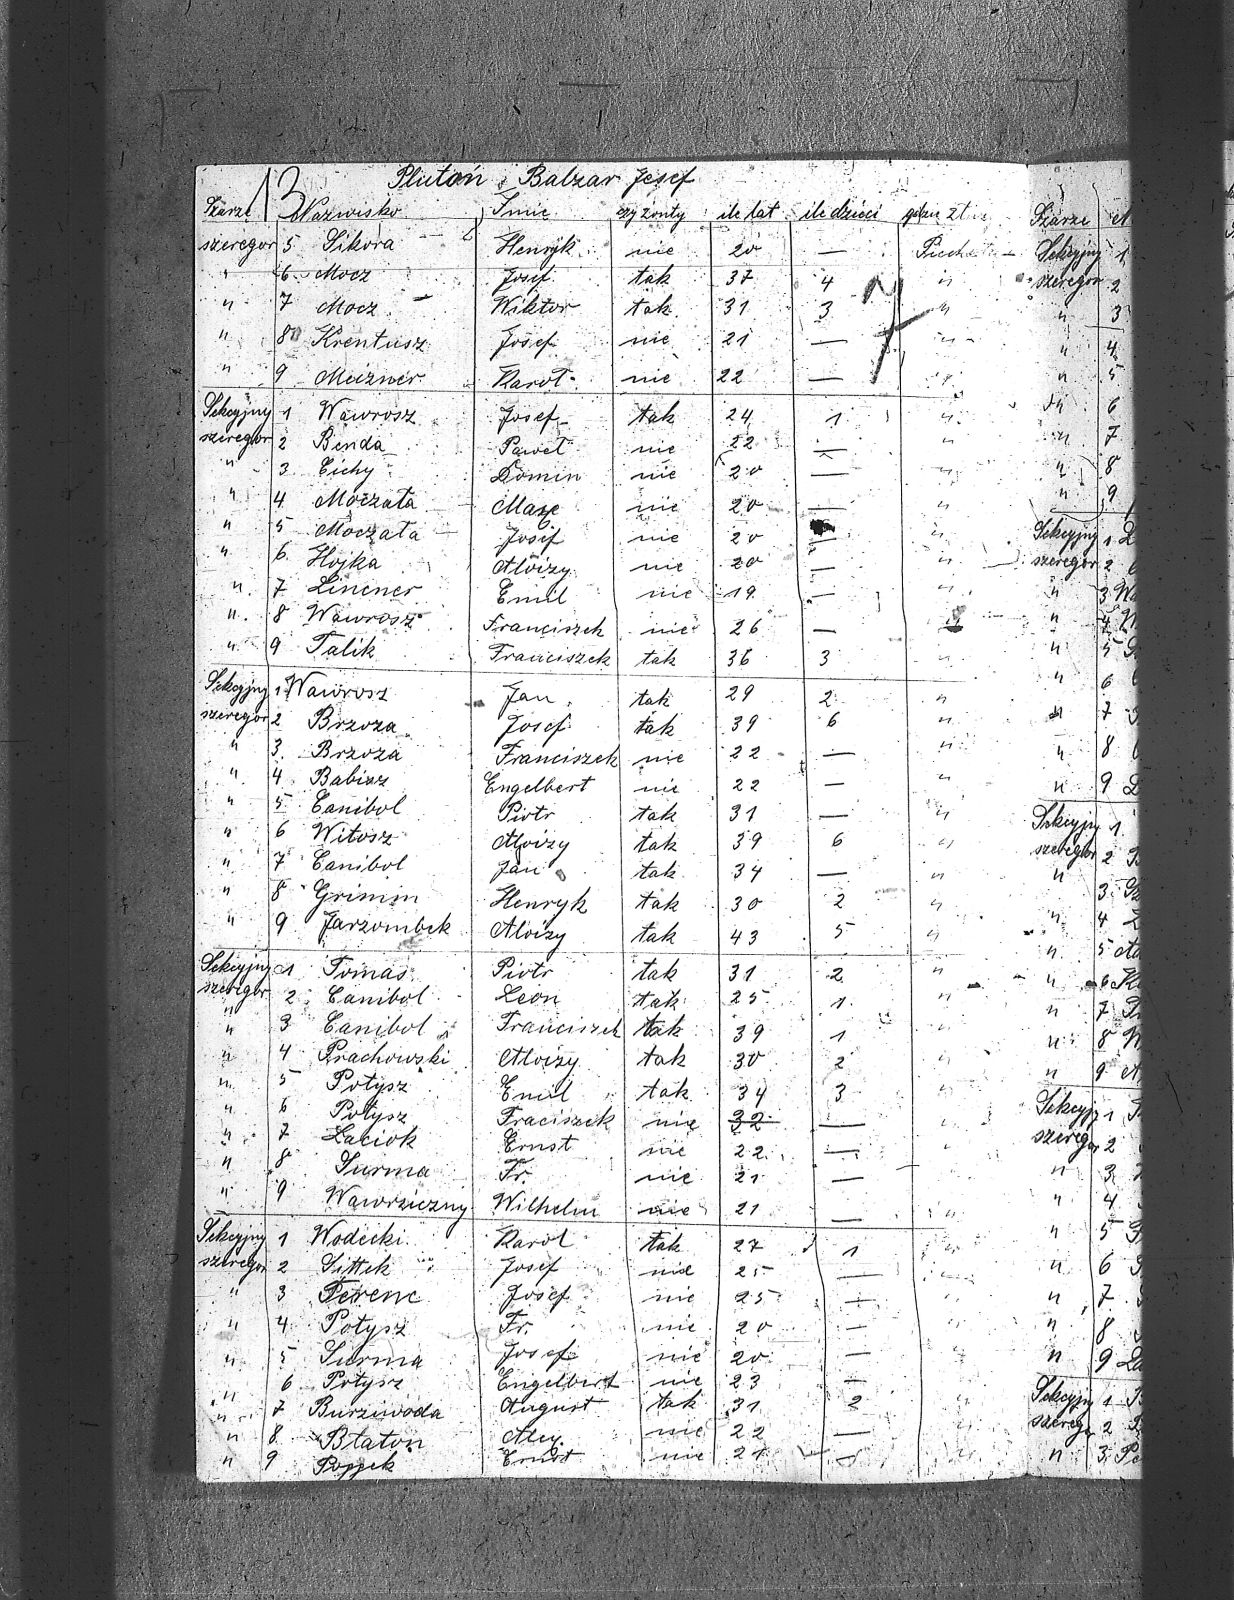 13 Plutoń Balzar Josef
Szarze Nazwisko Imie czy żonty ile lat ile dzieci gdzie
szeregor 5 Sikora Henryk nie 20 —
" 6 Mocz Josef tak 37 4 "
" 7 Mocz Wiktor tak 31 3 "
" 8 Krentusz Josef nie 21 — "
" 9 Meizner Karol nie 22 — "
Sekcyjny 1 Wawrosz Josef tak 24 1 "
szeregor 2 Benda Paweł nie 22 — "
" 3 Cichy Domin nie 20 — "
" 4 Moczata Max nie 20 — "
" 5 Moczata Josef nie 20 —
" 6 Hojka Aloizy nie 20 — "
" 7 Lincner Emil nie 19 — "
" 8 Wawrosz Franciszek nie 26 —
" 9 Talik Franciszek tak 36 3 "
Sekcyjny 1 Wawrosz Jan tak 29 2 "
szeregor 2 Brzoza Josef tak 39 6 "
" 3 Brzoza Franciszek nie 22 — "
" 4 Babisz Engelbert nie 22 — "
" 5 Canibol Piotr tak 31 — "
" 6 Witosz Aloizy tak 39 6 "
" 7 Canibol Jan tak 34 — "
" 8 Grimm Henryk tak 30 2 "
" 9 Jarzombek Aloizy tak 43 5 "
Sekcyjny 1 Tomas Piotr tak 31 2 "
szeregor 2 Canibol Leon tak 25 1 "
" 3 Canibol Franciszek tak 39 1 "
" 4 Prachowski Aloizy tak 30 2 "
" 5 Potysz Emil tak 34 3 "
" 6 Potysz Fraciszek nie 32 — "
" 7 Laciok Ernst nie 22 — "
" 8 Surma Fr. nie 21 —
" 9 Wawrziczny Wilhelm nie 21 — "
Sekcyjny 1 Wodecki Karol tak 27 1 "
szeregor 2 Sittek Josef nie 25 — "
" 3 Ferenc Josef nie 25 — "
" 4 Potysz Fr. nie 20 — "
" 5 Surma Josef nie 20 — "
" 6 Potysz Engelbert nie 23 — "
" 7 Burziwoda August tak 31 2 "
" 8 Błaton Aloj nie 22 — "
" 9 Poppek Ernst nie 21 — "
Szarze
Sekcyjny 1
szeregor 2
" 3
" 4
" 5
" 6
" 7
" 8
" 9
Sekcyjny 1
szeregor 2
" 3
" 4
" 5
" 6
" 7
" 8
" 9
Sekcyjny 1
szeregor 2
" 3
" 4
" 5
" 6
" 7
" 8
" 9
Sekcyj 1
szereg 2
" 3
" 4
" 5
" 6
" 7
" 8
" 9
Sekcyjny 1
szereg 2
" 3